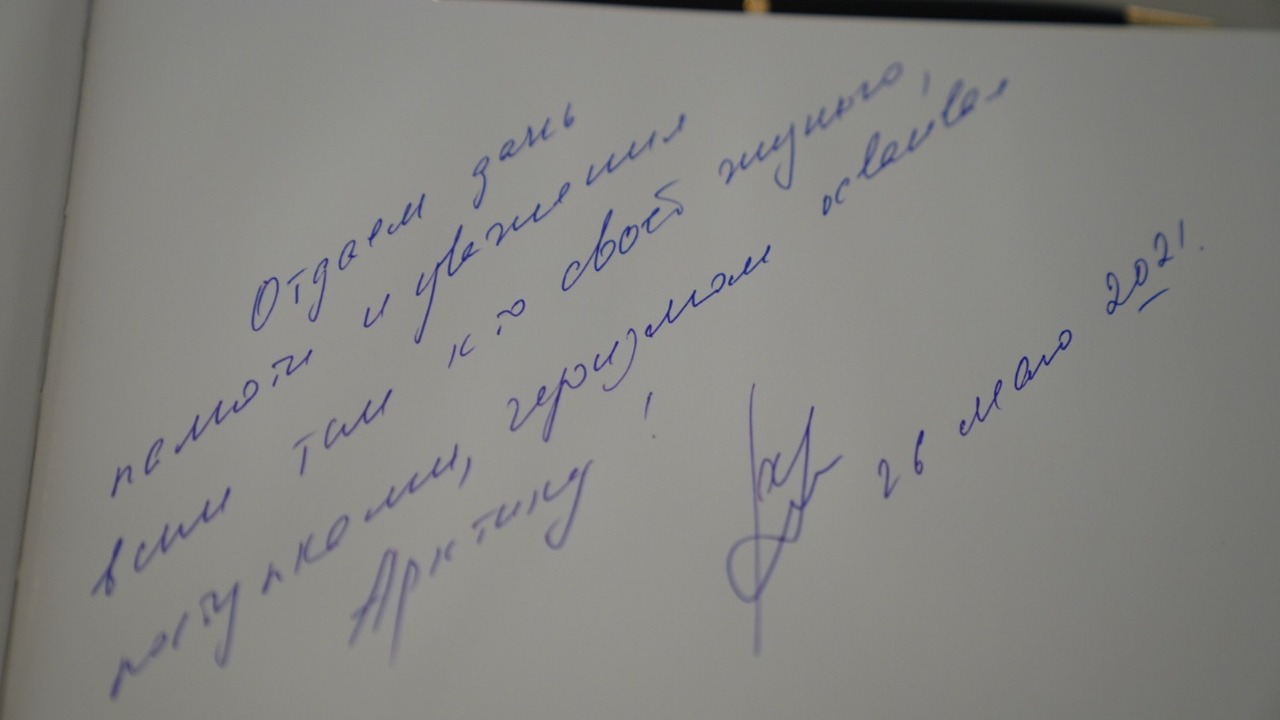 Отдаем дань
памяти и уважения
всем тем кто своей жизнью,
поступками, героизмом осваивал
Арктику !
26 мая 2021.